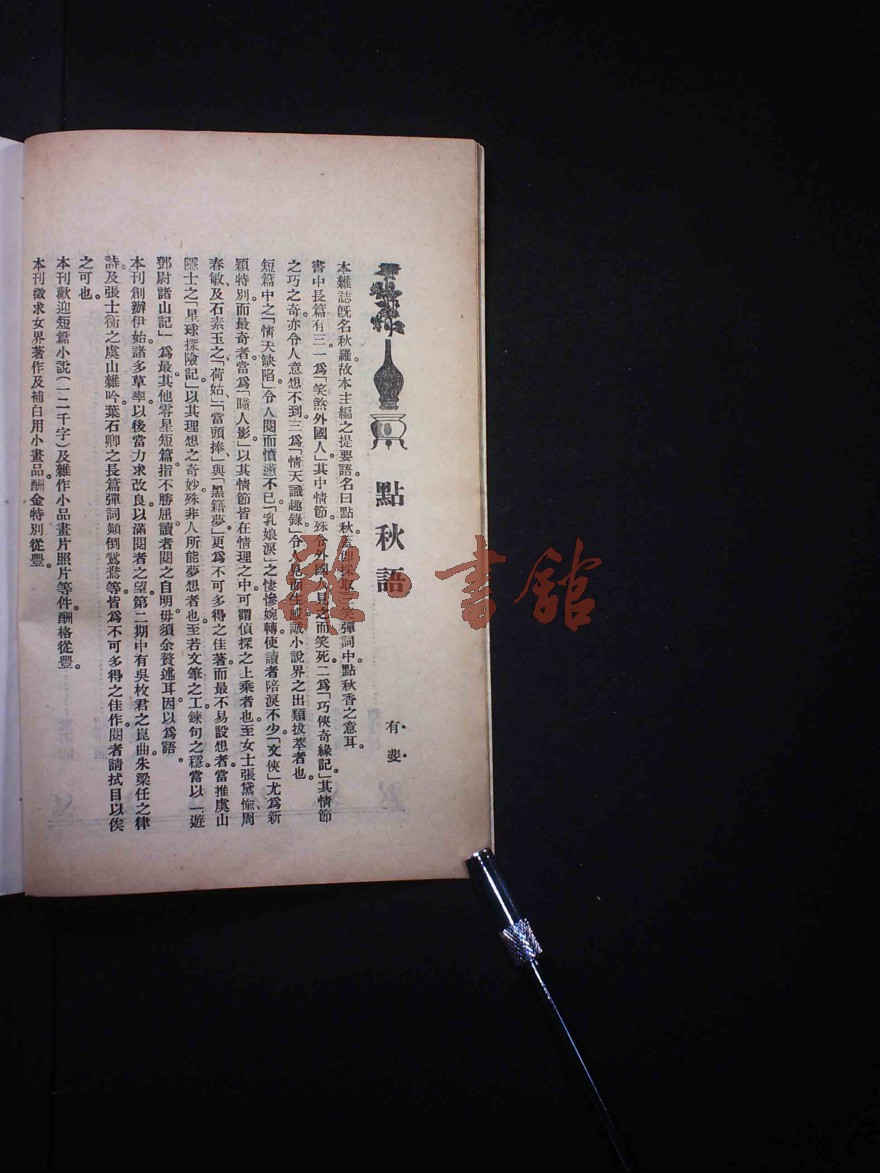 點秋語
有斐
本雜誌旣名秋羅故本主編之提要語名曰點秋語卽採取三笑彈詞中點秋香之意耳。
書中長篇有三一爲「笑煞外國人」其中情節殊令外國人見之而笑死。二爲「巧俠奇緣記」其情節
之巧之奇亦令人意想不到三爲「情天識趣錄」令人見而生感誠小說界之出類拔萃者也。
短篇中之「情天缺陷」令人閱而憤懑不已「乳娘淚」之悽慘婉轉使讀者陪淚不少。「文俠」尤爲新
穎特別而最奇者當爲「瞳人影」以其情節皆在情理之中可謂偵探之上乘者也。至女士張黛愉、周
春敏及石素玉之「荷姑」、「當頭捧」與「黑籍夢」更爲不可多得之佳著。而最不易設想者當推虞山
隱士之「星球探險記」以其理想之奇妙殊非人所能夢想者也。至若文筆之工鍊句之穩當以「遊
鄧尉諸山記」爲最其他零星短篇指不勝屈讀者閱之自明毋須余贅述耳因以爲語。
本刊創辦伊始諸多草率以後當力求改良以滿閱者之望。第二期中有吳枚君之崑曲朱梁任之律
詩。及張士衡之虞山雜吟葉石卿之長篇彈詞顚倒鴛鴦等皆爲不可多得之佳作閱者請拭目以俟
之可也。
本刊歡迎短篇小說(一二千字)及雜作小品畫片照片等件酬格從豐。
本刊徵求女界著作及補白用小畫品酬金特別從豐。
書舘